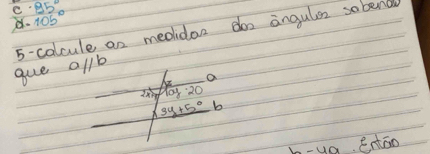 c. 85°
d. 105°
5-calcule as medidas dos ângulos sabendo
que a//b
a
10y-20
9y+5° b
b-4a. Então